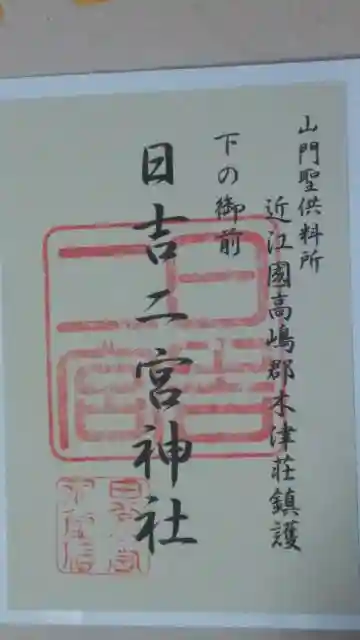 山門聖供料所
近江國高嶋郡木津荘鎮護
下の御前
日吉二宮神社
日吉
二宮